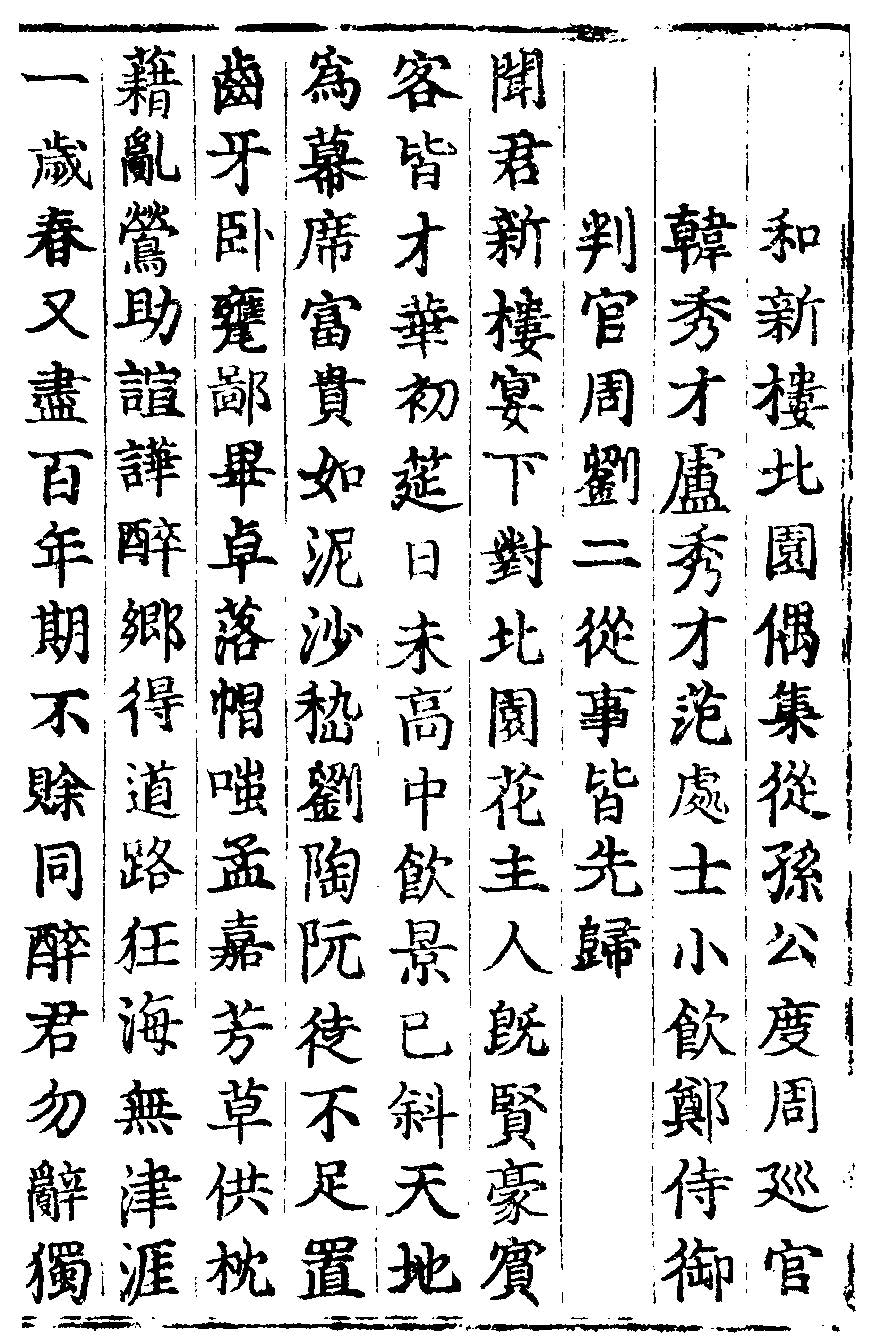 和新樓北園偶集從孫公度周廵官
韓秀才盧秀才范處士小飲鄭侍御
判官周劉二從事皆先歸
聞君新樓宴下對北園花主人旣賢豪賓
客皆才華初筵日未高中飲景已斜天地
爲幕席富貴如泥沙嵇劉陶阮徒不足置
齒牙卧甕鄙畢卓落帽嗤孟嘉芳草供枕
藉亂鶯助諠譁醉鄉得道路狂海無津涯
一歲春又盡百年期不賒同醉君勿辭獨